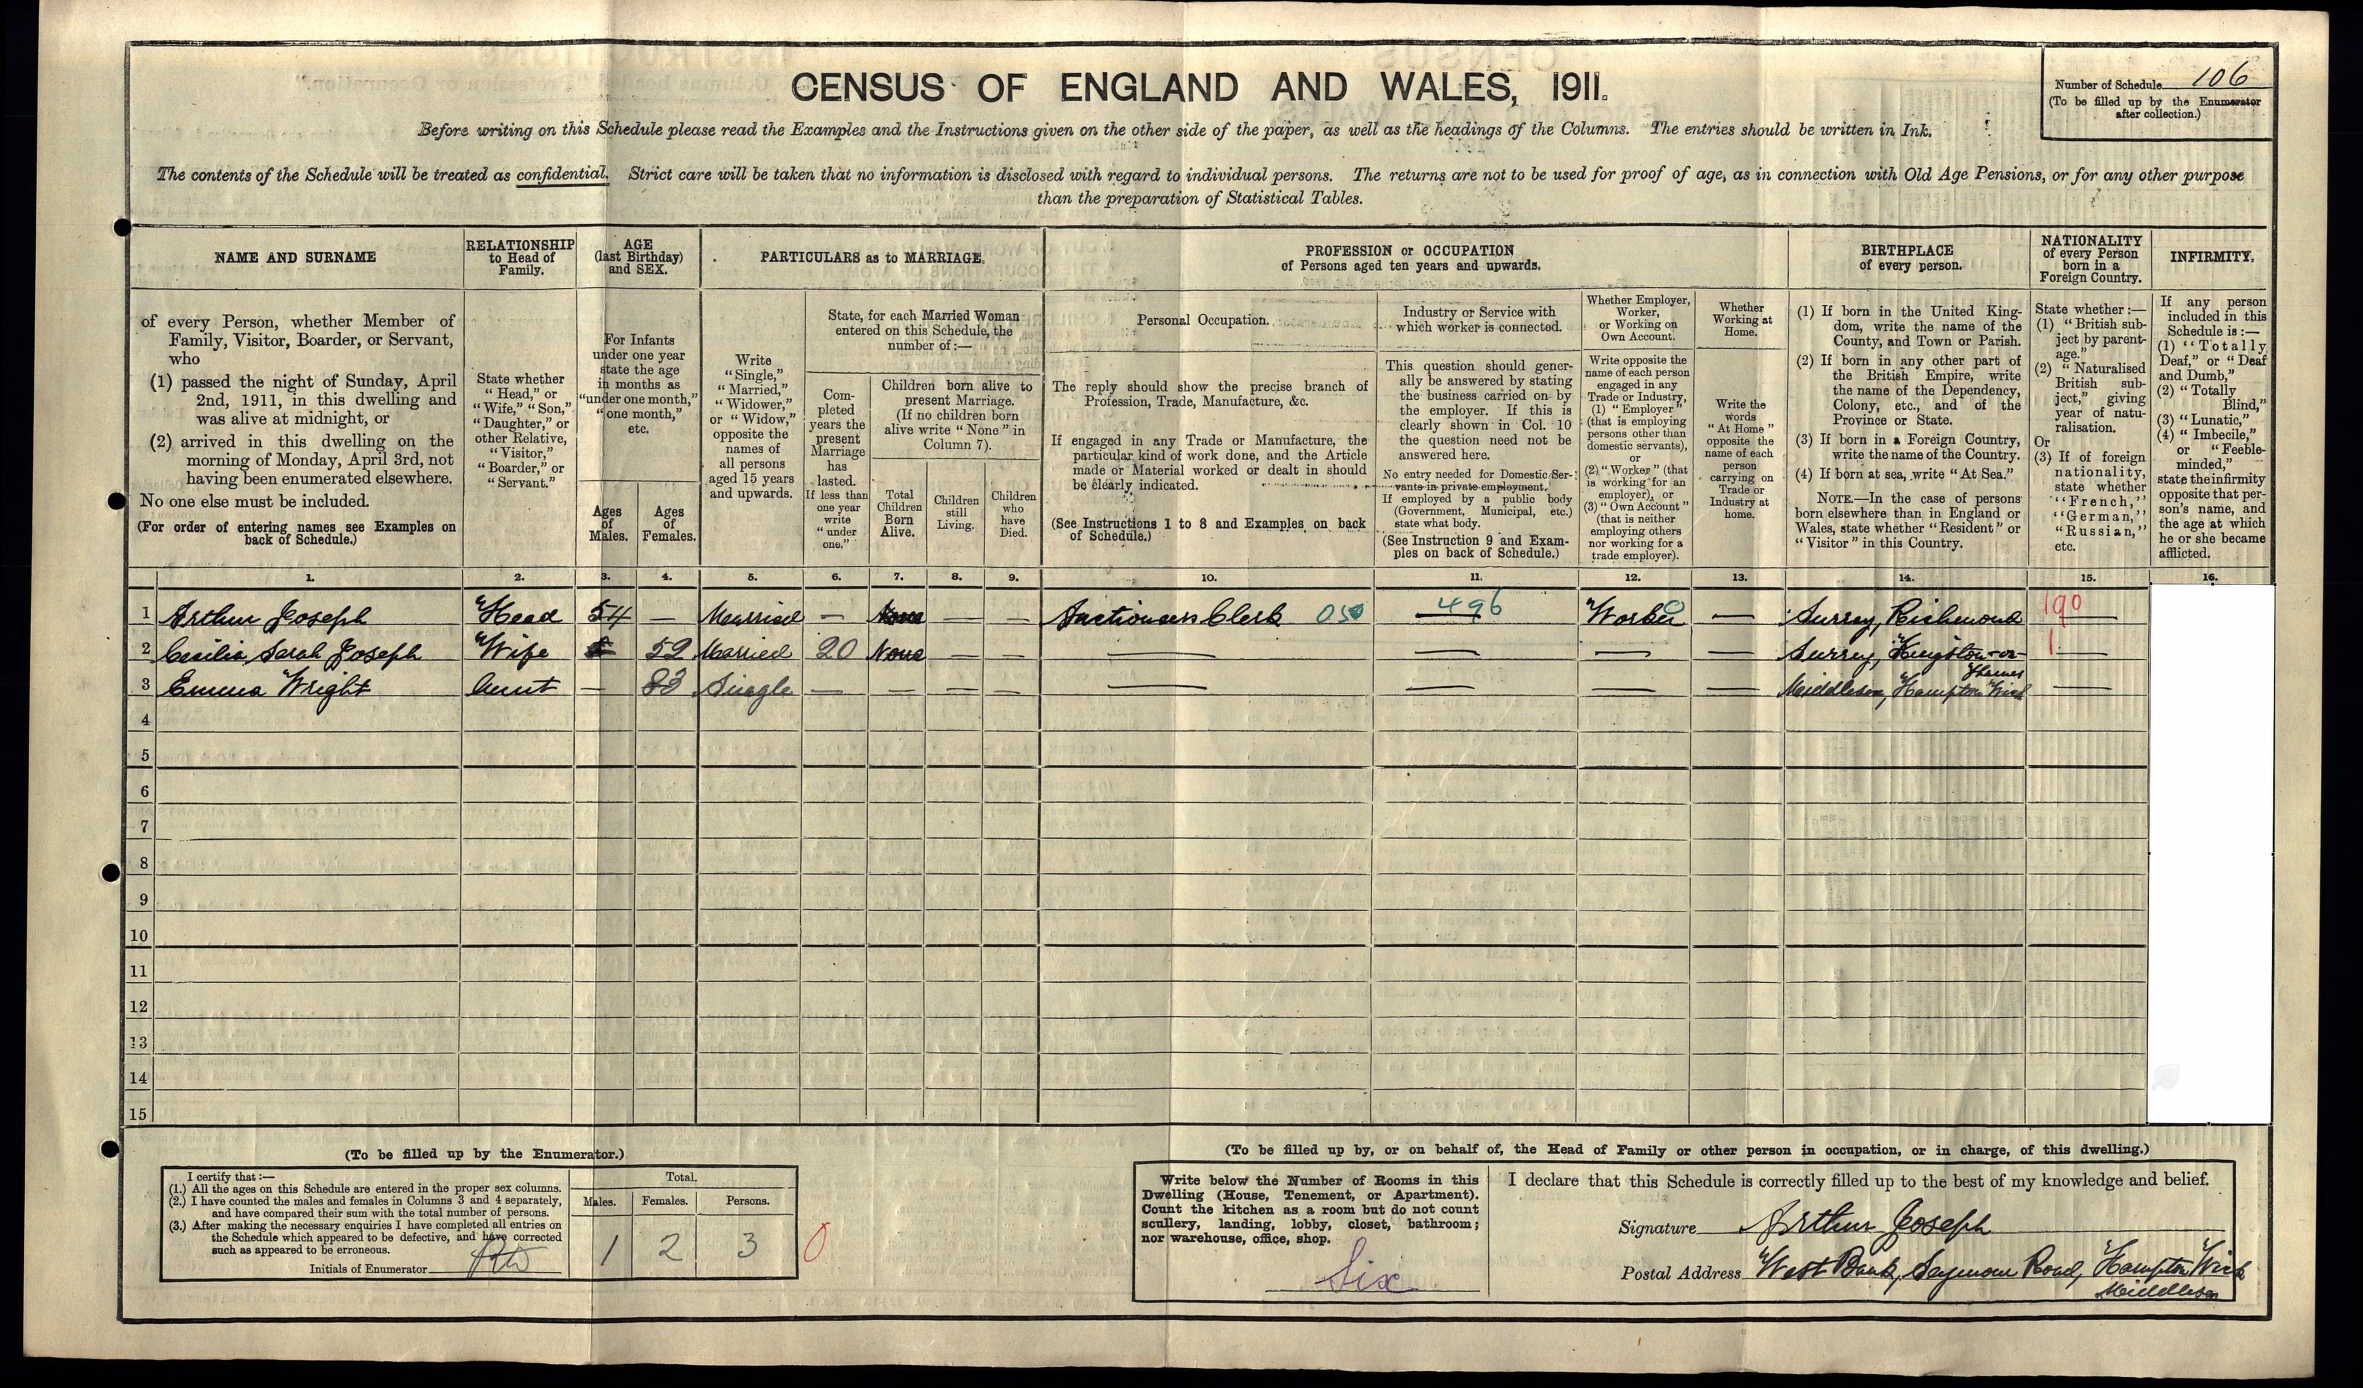 CENSUS OF ENGLAND AND WALES, 1911.
Number of Schedule 106
(To be filled up by the Enumerator
after collection.)
Before writing on this Schedule please read the Examples and the Instructions given on the other side of the paper, as well as the headings of the Columns. The entries should be written in Ink.
The contents of the Schedule will be treated as confidential. Strict care will be taken that no information is disclosed with regard to individual persons. The returns are not to be used for proof of age, as in connection with Old Age Pensions, or for any other purpose
than the preparation of Statistical Tables.
NAME AND SURNAME
of every Person, whether Member of
Family, Visitor, Boarder, or Servant,
who
(1) passed the night of Sunday, April
2nd, 1911, in this dwelling and
was alive at midnight, or
(2) arrived in this dwelling on the
morning of Monday, April 3rd, not
having been enumerated elsewhere.
No one else must be included.
(For order of entering names see Examples on
back of Schedule.)
RELATIONSHIP
to Head of
Family.
State whether
"Head," or
"Wife," "Son,"
"Daughter," or
other Relative,
"Visitor,"
"Boarder," or
"Servant."
AGE
(last Birthday)
and SEX.
For Infants
under one year
state the age
in months as
"under one month,"
"one month,"
etc.
Ages
of
Males.
Ages
of
Females.
PARTICULARS as to MARRIAGE.
Write
"Single,"
"Married,"
"Widower,"
or "Widow,"
opposite the
names of
all persons
aged 15 years
and upwards.
State, for each Married Woman
entered on this Schedule, the
number of :—
Com-
pleted
years the
present
Marriage
has
lasted.
If less than
one year
write
"under
one."
Children born alive to
present Marriage.
(If no children born
alive write "None" in
Column 7).
Total
Children
Born
Alive.
Children
still
Living.
Children
who
have
Died.
PROFESSION or OCCUPATION
of Persons aged ten years and upwards.
Personal Occupation.
The reply should show the precise branch of
Profession, Trade, Manufacture, &c.
If engaged in any Trade or Manufacture, the
particular kind of work done, and the Article
made or Material worked or dealt in should
be clearly indicated.
(See Instructions 1 to 8 and Examples on back
of Schedule.)
Industry or Service with
which worker is connected.
This question should gener-
ally be answered by stating
the business carried on by
the employer. If this is
clearly shown in Col. 10
the question need not be
answered here.
No entry needed for Domestic Ser-
vants in private employment.
If employed by a public body
(Government, Municipal, etc.)
state what body.
(See Instruction 9 and Exam-
ples on back of Schedule.)
Whether Employer,
Worker,
or Working on
Own Account.
Write opposite the
name of each person
engaged in any
Trade or Industry,
(1) "Employer"
(that is employing
persons other than
domestic servants),
or
(2) "Worker" (that
is working for an
employer), or
(3) "Own Account"
(that is neither
employing others
nor working for a
trade employer).
Whether
Working at
Home.
Write the
words
"At Home"
opposite the
name of each
person
carrying on
Trade or
Industry at
home.
BIRTHPLACE
of every person.
(1) If born in the United King-
dom, write the name of the
County, and Town or Parish.
(2) If born in any other part of
the British Empire, write
the name of the Dependency,
Colony, etc., and of the
Province or State.
(3) If born in a Foreign Country,
write the name of the Country.
(4) If born at sea, write "At Sea."
NOTE.—In the case of persons
born elsewhere than in England or
Wales, state whether "Resident" or
"Visitor" in this Country.
NATIONALITY
of every Person
born in a
Foreign Country.
State whether :—
(1) "British sub-
ject by parent-
age."
(2) "Naturalised
British sub-
ject," giving
year of natu-
ralisation.
Or
(3) If of foreign
nationality,
state whether
"French,"
"German,"
"Russian,"
etc.
INFIRMITY.
If any person
included in this
Schedule is :—
(1) "Totally
Deaf," or "Deaf
and Dumb,"
(2) "Totally
Blind,"
(3) "Lunatic,"
(4) "Imbecile,"
or "Feeble-
minded,"
state the infirmity
opposite that per-
son's name, and
the age at which
he or she became
afflicted.
1. 2. 3. 4. 5. 6. 7. 8. 9. 10. 11. 12. 13. 14. 15. 16.
1 Arthur Joseph Head 54 — Married — None — — Auctioneers Clerk 050 496 Worker — Surrey, Richmond 190 —
2 Cecilia Sarah Joseph Wife 52 Married 20 None — — — — — — Surrey, Kingston-on-Thames 1 —
3 Emma Wright Aunt — 83 Single — — — — — — — — Middlesex, Hampton Wick —
4
5
6
7
8
9
10
11
12
13
14
15
(To be filled up by the Enumerator.)
I certify that :—
(1.) All the ages on this Schedule are entered in the proper sex columns.
(2.) I have counted the males and females in Columns 3 and 4 separately,
and have compared their sum with the total number of persons.
(3.) After making the necessary enquiries I have completed all entries on
the Schedule which appeared to be defective, and have corrected
such as appeared to be erroneous.
Initials of Enumerator
Total.
Males. Females. Persons.
1 2 3 0
(To be filled up by, or on behalf of, the Head of Family or other person in occupation, or in charge, of this dwelling.)
Write below the Number of Rooms in this
Dwelling (House, Tenement, or Apartment).
Count the kitchen as a room but do not count
scullery, landing, lobby, closet, bathroom;
nor warehouse, office, shop.
Six
I declare that this Schedule is correctly filled up to the best of my knowledge and belief.
Signature Arthur Joseph
Postal Address West Bank, Seymour Road, Hampton Wick
Middlesex